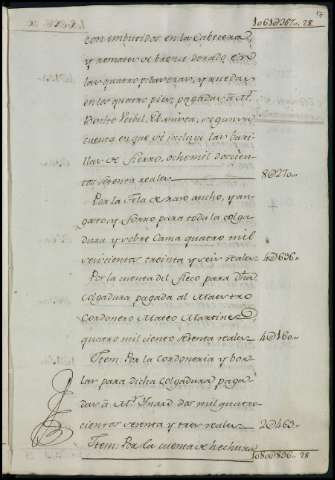 1061U367„ 28
17
con embutidos en la Cabecera,
y remates de bronce dorado en
las quatro
en los quatro pies, pagadas â Mr.
segun su
cuenta en que se incluyen las bari-
llas de fierro, ocho mil doscien-
tos setenta reales 8U270„
Por la tela de raso ancho, y an-
gosto, y forro para toda la colga-
dura y sobre Cama quatro mil
seiscientos treinta y seis reales 4U636„
Por la cuenta del fleco para dha
Colgadura pagada al Maestro
Cordonero Mateo Martinez
quatro mil ciento sesenta reales 4U160„
Ittem: Por la Cordoneria y bor-
las para dicha colgadura paga-
das â Mr. dos mil quatro-
cientos sesenta y tres reales 2U463„
Ittem: Por la cuenta de hechura
1080U896„ 28